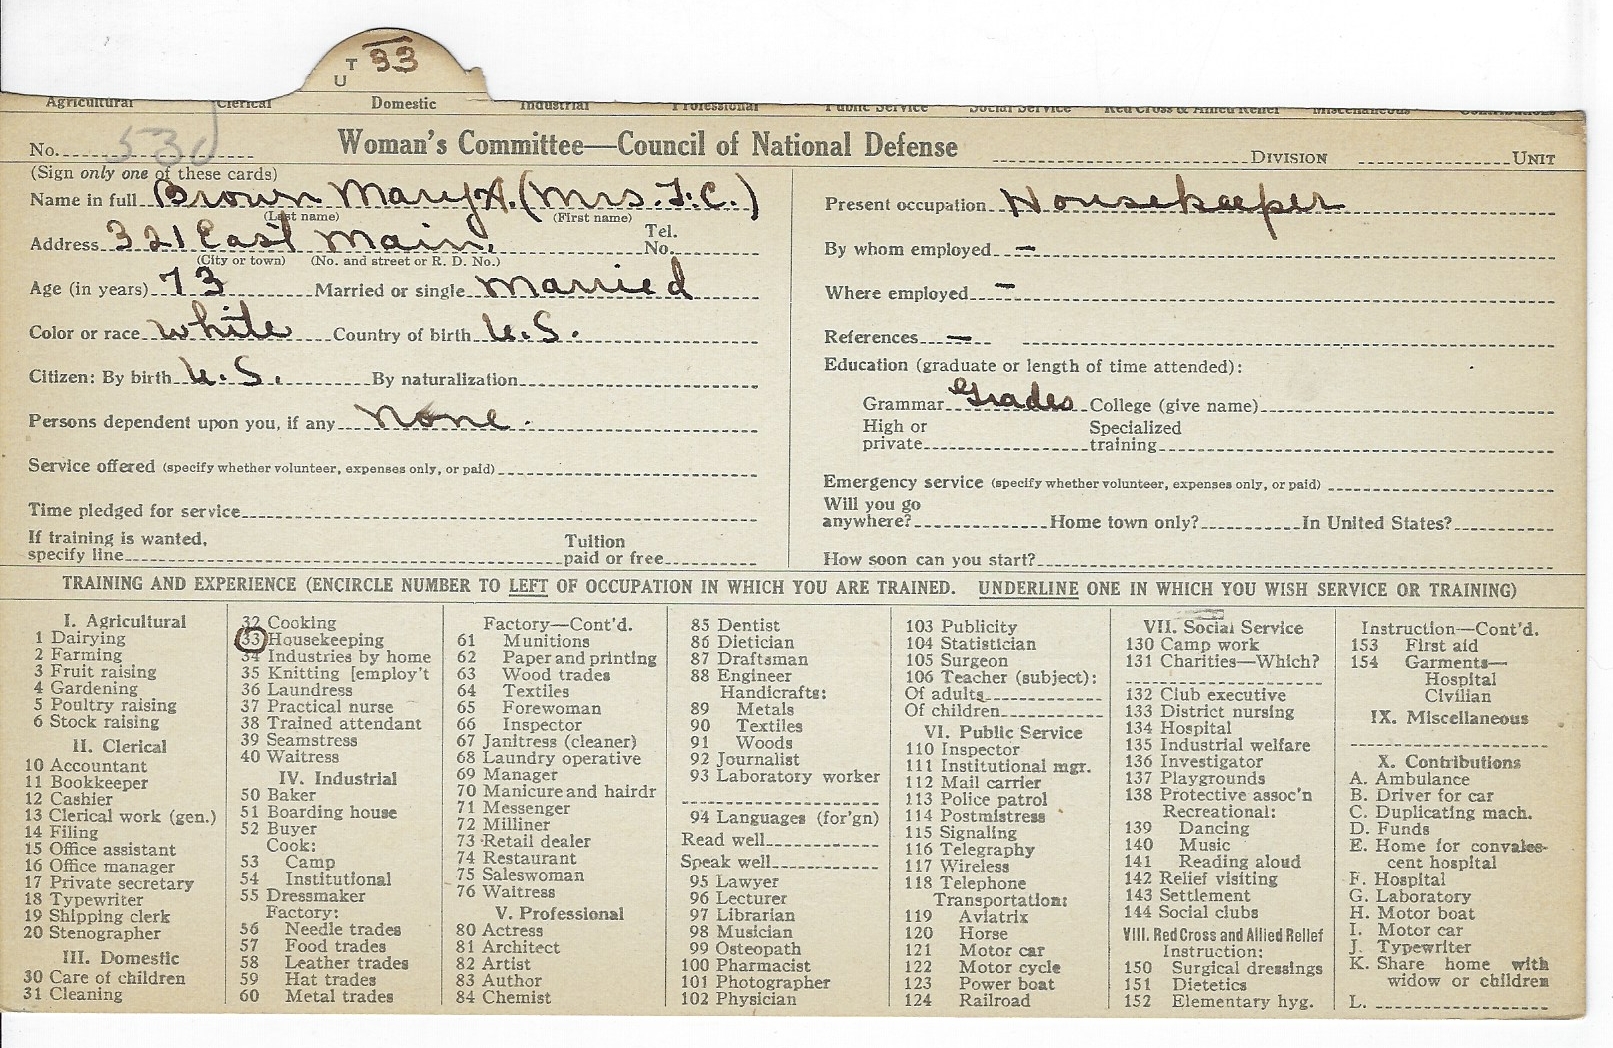 T 33
U
Agricultural Clerical Domestic Industrial Professional Public Service Social Service Red Cross & Allied Relief Miscellaneous Contributions
No. 530 Woman's Committee—Council of National Defense DIVISION UNIT
(Sign only one of these cards)
Name in full Brown Mary A. (Mrs. F. C.)
(Last name) (First name)
Address 321 East Main. Tel. No.
(City or town) (No. and street or R. D. No.)
Age (in years) 73 Married or single Married
Color or race White Country of birth U.S.
Citizen: By birth U.S. By naturalization
Persons dependent upon you, if any None.
Service offered (specify whether volunteer, expenses only, or paid)
Time pledged for service
If training is wanted,
specify line Tuition paid or free
Present occupation Housekeeper
By whom employed –
Where employed –
References –
Education (graduate or length of time attended):
Grammar Grades College (give name)
High or private Specialized training
Emergency service (specify whether volunteer, expenses only, or paid)
Will you go
anywhere? Home town only? In United States?
How soon can you start?
TRAINING AND EXPERIENCE (ENCIRCLE NUMBER TO LEFT OF OCCUPATION IN WHICH YOU ARE TRAINED. UNDERLINE ONE IN WHICH YOU WISH SERVICE OR TRAINING)
I. Agricultural
1 Dairying
2 Farming
3 Fruit raising
4 Gardening
5 Poultry raising
6 Stock raising
II. Clerical
10 Accountant
11 Bookkeeper
12 Cashier
13 Clerical work (gen.)
14 Filing
15 Office assistant
16 Office manager
17 Private secretary
18 Typewriter
19 Shipping clerk
20 Stenographer
III. Domestic
30 Care of children
31 Cleaning
32 Cooking
33 Housekeeping
34 Industries by home
35 Knitting [employ't
36 Laundress
37 Practical nurse
38 Trained attendant
39 Seamstress
40 Waitress
IV. Industrial
50 Baker
51 Boarding house
52 Buyer
Cook:
53 Camp
54 Institutional
55 Dressmaker
Factory:
56 Needle trades
57 Food trades
58 Leather trades
59 Hat trades
60 Metal trades
Factory—Cont'd.
61 Munitions
62 Paper and printing
63 Wood trades
64 Textiles
65 Forewoman
66 Inspector
67 Janitress (cleaner)
68 Laundry operative
69 Manager
70 Manicure and hairdr
71 Messenger
72 Milliner
73 Retail dealer
74 Restaurant
75 Saleswoman
76 Waitress
V. Professional
80 Actress
81 Architect
82 Artist
83 Author
84 Chemist
85 Dentist
86 Dietician
87 Draftsman
88 Engineer
Handicrafts:
89 Metals
90 Textiles
91 Woods
92 Journalist
93 Laboratory worker
94 Languages (for'gn)
Read well
Speak well
95 Lawyer
96 Lecturer
97 Librarian
98 Musician
99 Osteopath
100 Pharmacist
101 Photographer
102 Physician
103 Publicity
104 Statistician
105 Surgeon
106 Teacher (subject):
Of adults
Of children
VI. Public Service
110 Inspector
111 Institutional mgr.
112 Mail carrier
113 Police patrol
114 Postmistress
115 Signaling
116 Telegraphy
117 Wireless
118 Telephone
Transportation:
119 Aviatrix
120 Horse
121 Motor car
122 Motor cycle
123 Power boat
124 Railroad
VII. Social Service
130 Camp work
131 Charities—Which?
132 Club executive
133 District nursing
134 Hospital
135 Industrial welfare
136 Investigator
137 Playgrounds
138 Protective assoc'n
Recreational:
139 Dancing
140 Music
141 Reading aloud
142 Relief visiting
143 Settlement
144 Social clubs
VIII. Red Cross and Allied Relief
Instruction:
150 Surgical dressings
151 Dietetics
152 Elementary hyg.
Instruction—Cont'd.
153 First aid
154 Garments—
Hospital
Civilian
IX. Miscellaneous
X. Contributions
A. Ambulance
B. Driver for car
C. Duplicating mach.
D. Funds
E. Home for convales-
cent hospital
F. Hospital
G. Laboratory
H. Motor boat
I. Motor car
J. Typewriter
K. Share home with
widow or children
L.